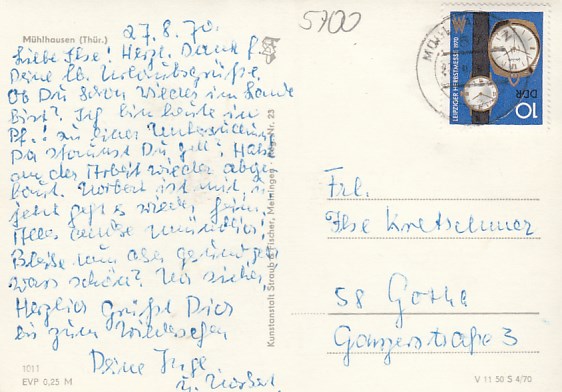 Mühlhausen (Thür.)
27.8.70
5700
Liebe Ilse! Herzl. Dank f.
Deine lb. Urlaubsgrüße.
Ob Du schon wieder im Lande
bist? Ich bin heute in
Pf.! zu einer Untersuchung
Da staunst Du gell! Habe
an der Arbeit wieder abge
baut. Norbert ist mit,
jetzt geht es wieder heim.
Alles andere mündlich!
Bleibe nun aber gesund,
wars schön? Wir
Herzlich grüßt Dich
bis zum Wiedersehen
Deine Inge
u. Norbert
1011
EVP 0,25 M
Kunstanstalt Straub & Fischer, Meiningen · Reg.-Nr. 23
LEIPZIGER HERBSTMESSE 1970
DDR
10
Frl.
Ilse Kretschmer
58 Gotha
Ganzerstraße 3
V 11 50 S 4/70